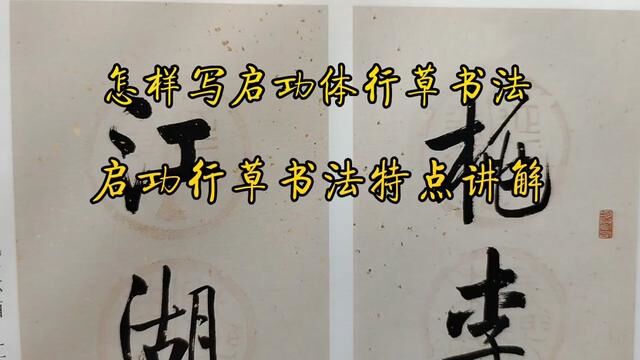 怎样写启功体行草书法
启功行草书法特点讲解
桃李
江湖